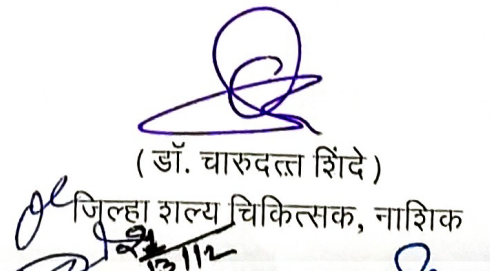 ( डॉ. चारुदत्त शिंदे )
जिल्हा शल्य चिकित्सक, नाशिक
13/12